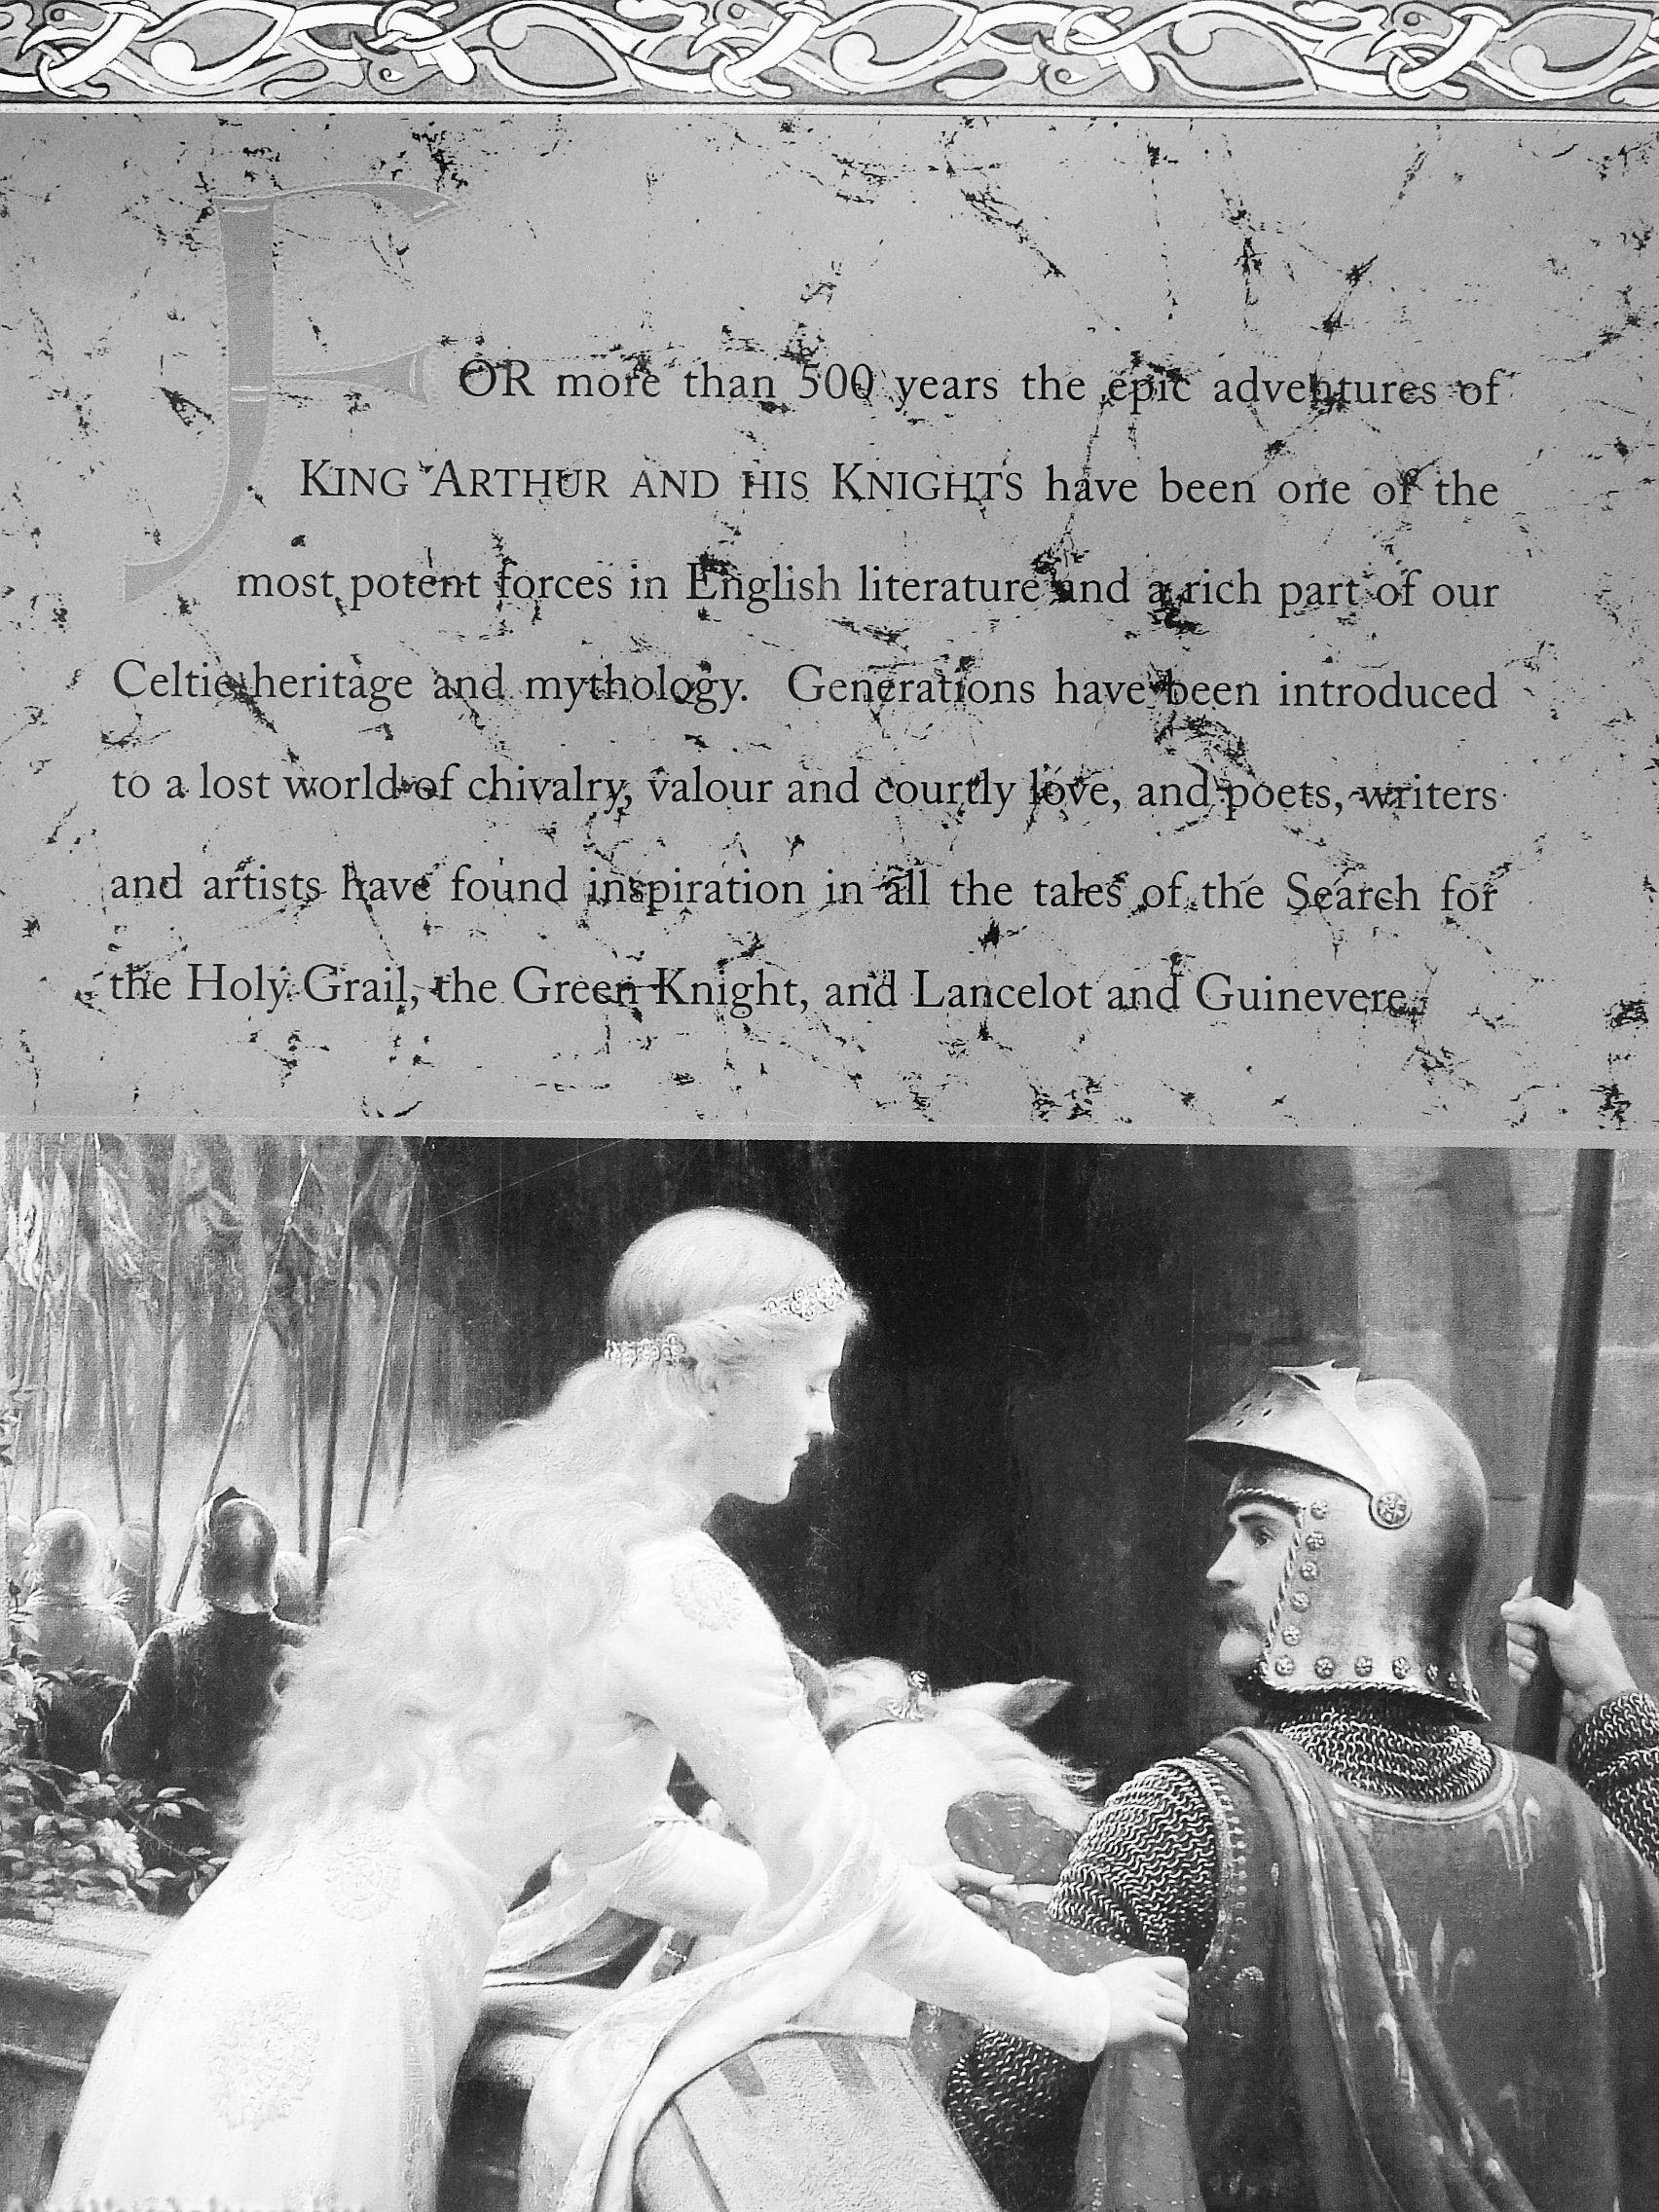 FOR more than 500 years the epic adventures of
KING ARTHUR AND HIS KNIGHTS have been one of the
most potent forces in English literature and a rich part of our
Celtic heritage and mythology. Generations have been introduced
to a lost world of chivalry, valour and courtly love, and poets, writers
and artists have found inspiration in all the tales of the Search for
the Holy Grail, the Green Knight, and Lancelot and Guinevere.